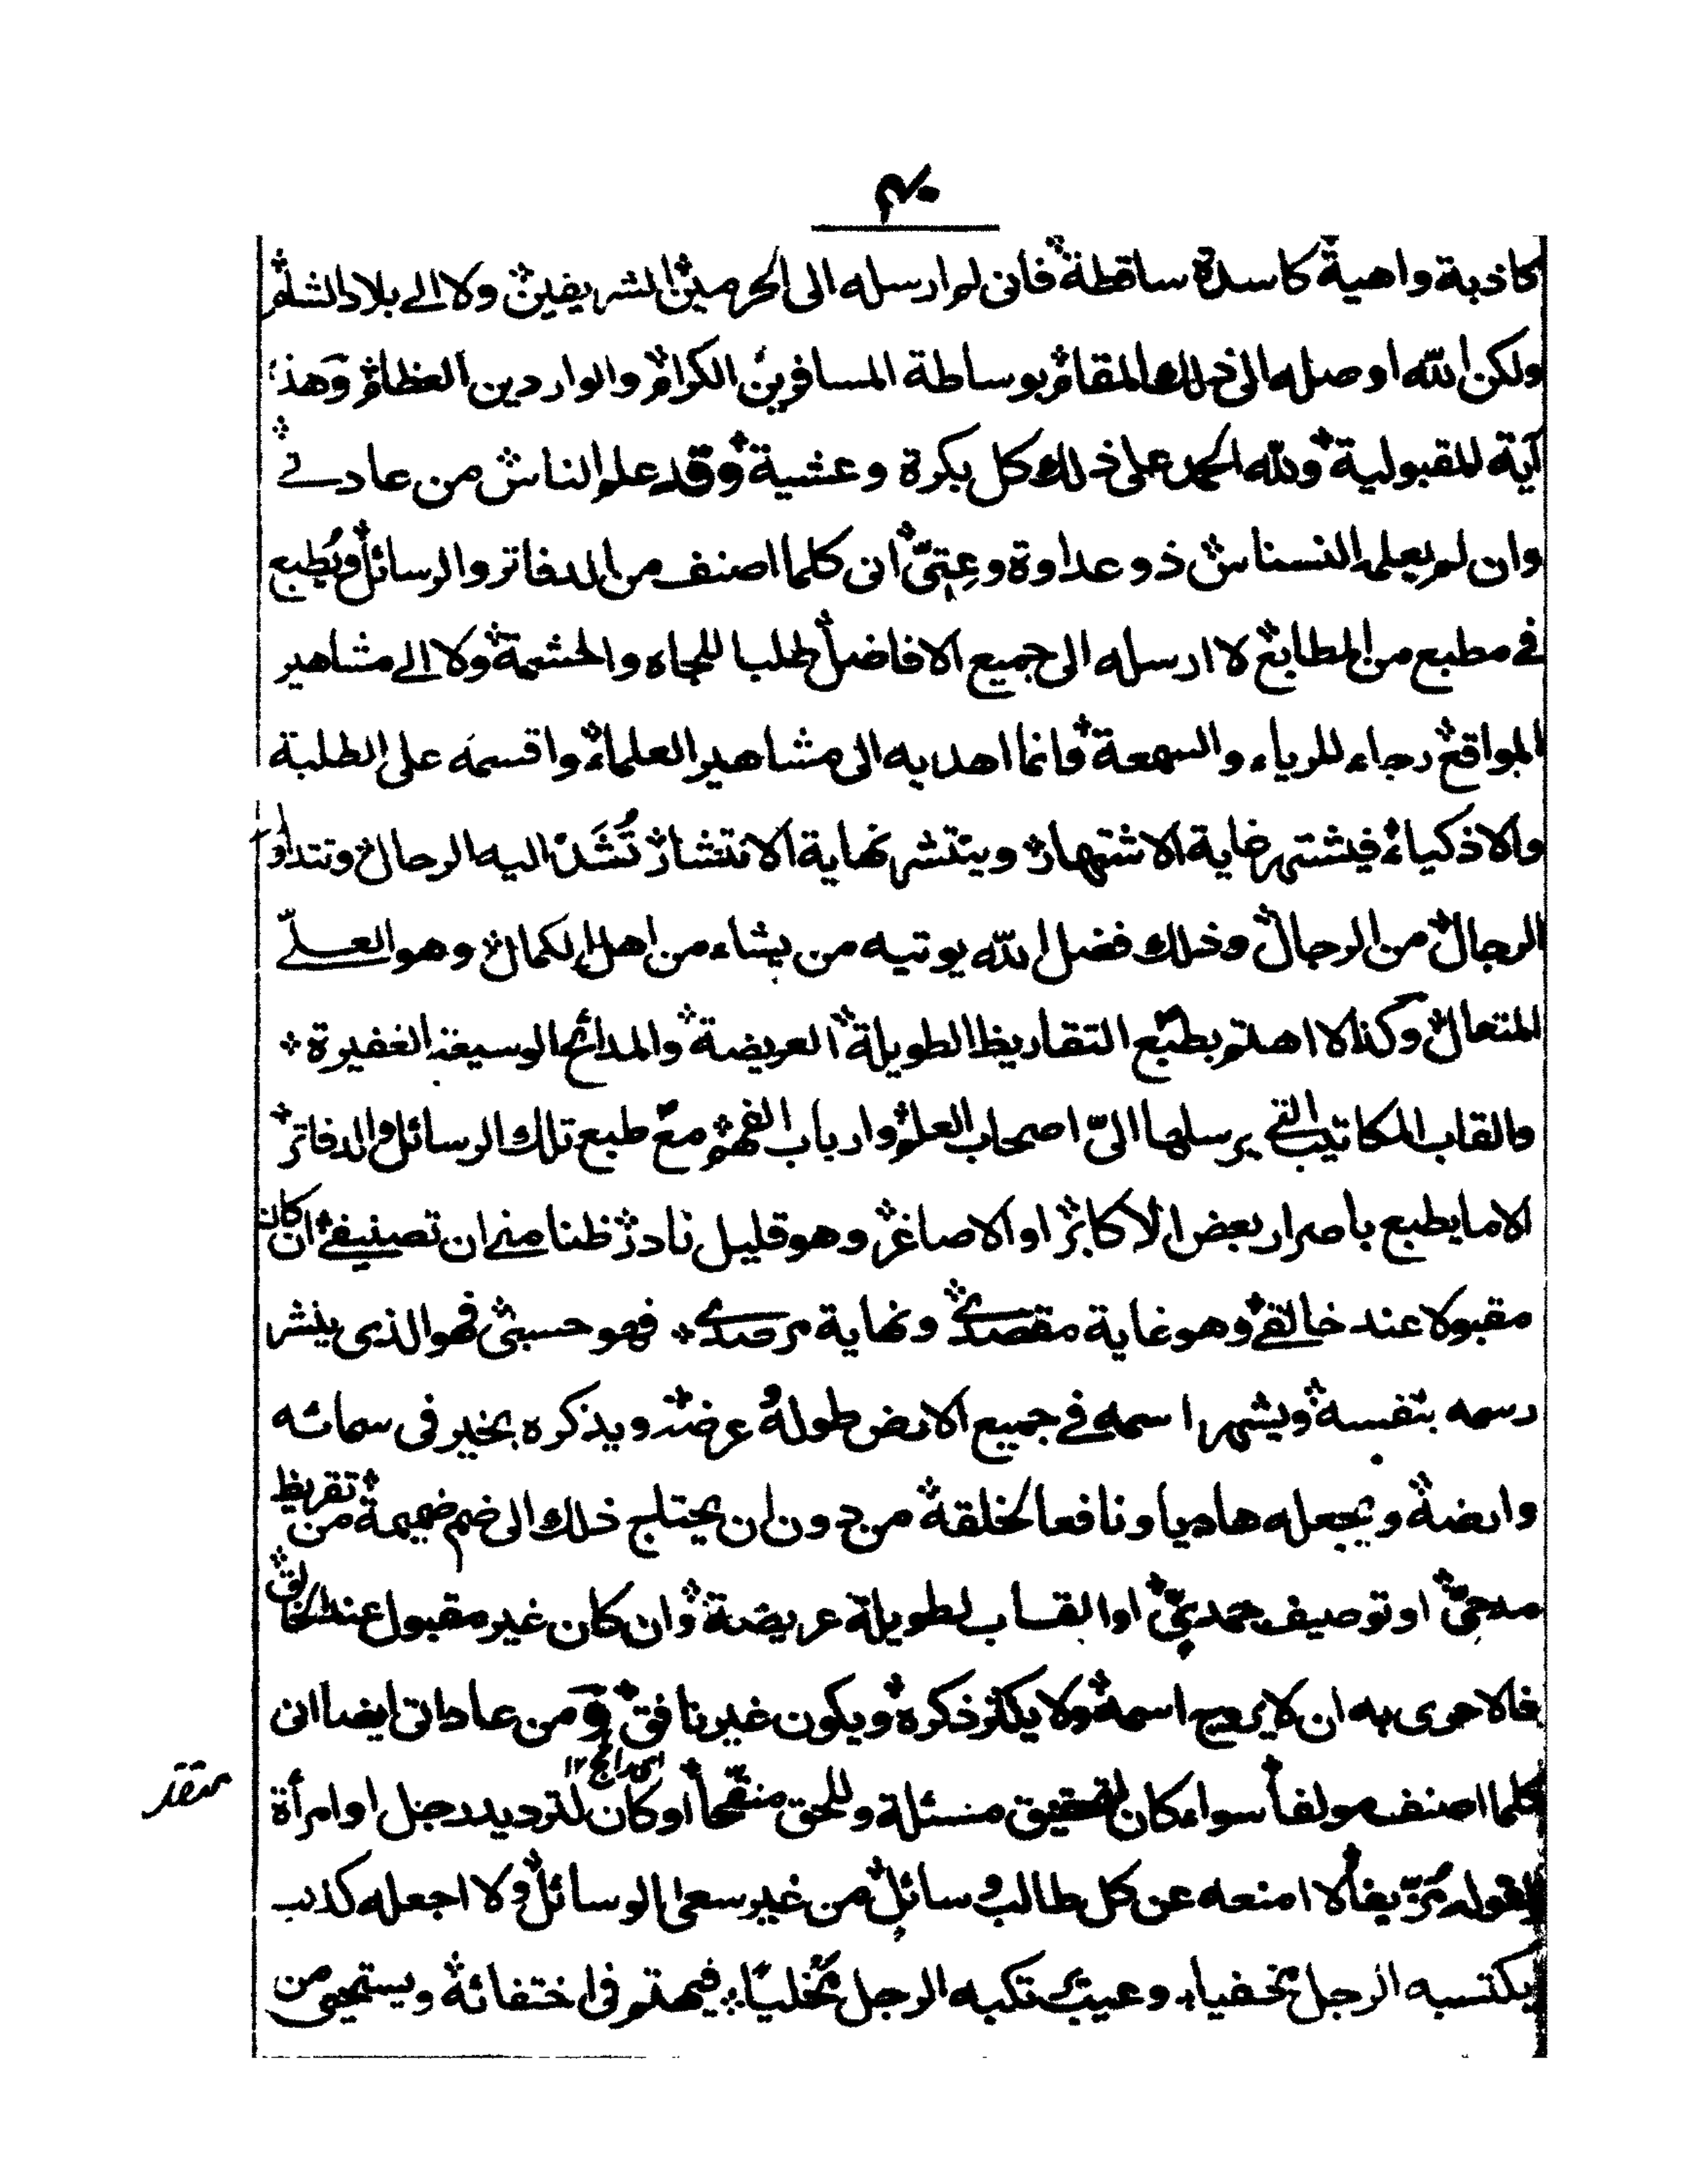 ٤٠
كاذبة واهية كاسدة ساقطة فانى لم ارسله الى الحرمين الشريفين ولا الے بلاد الشام
ولكن الله اوصله الى ذلك المقام بوساطة المسافرين الكرام والواردين العظام وهذا
آية للمقبولية ولله الحمد على ذلك كل بكرة وعشية وقد علم الناس من عادتے
وان لم يعلمه النسناس ذو عداوة وعتىّ انى كلما اصنف من الدفاتر والرسائل ويُطبع
فے مطبع من المطابع لا ارسله الى جميع الافاضل طلبا للجاه والحشمة ولا الے مشاهير
المواقع رجاء للرياء والسمعة وانما اهديه الى مشاهير العلماء واقسمه على الطلبة
والاذكياء فيشتهر غاية الاشتهار وينتشر نهاية الانتشار تُشَدّ اليه الرحال وتتداوله
الرجال من الرجال وذلك فضل الله يوتيه من يشاء من اهل الكمال وهو العلےّ
المتعال وكذا لا اهتم بطبع التقاريظ الطويلة العريضة والمدائح الوسيعة الغفيرة
والقاب المكاتيب التے يرسلها الىّ اصحاب العلم وارباب الفهم مع طبع تلك الرسائل والدفاتر
الا ما يطبع باصرار بعض الاكابر او الاصاغر وهو قليل نادر ظنا منے ان تصنيفے ان كان
مقبولا عند خالقے وهو غاية مقصدے ونهاية مرصدے فهو حسبى فهو الذى ينشر
رسمه بنفسه ويشهر اسمه فے جميع الارض طوله وعرضه ويذكره بخير فى سمائه
وارضه ويجعله هاديا ونافعا لخلقه من دون ان يحتاج ذلك الى ضم ضميمة من تقريظ
مدحىّ او توصيف حمدىّ او القاب طويلة عريضة وان كان غير مقبول عند الخالق
فالاحرى به ان لا يروج اسمه ولا يكثر ذكره ويكون غير نافق ومن عاداتى ايضا انى
كلما اصنف مولفا سواء كان لتحقيق مسئلة وللحق منقّحاً او كان لترديد رجل او امرأة
لقوله مُزيّفاً لا امنعه عن كل طالب وسائل من غير سعى الوسائل ولا اجعله كذنب
يكتسبه الرجل تخفيا وعيب يرتكبه الرجل تخليًا فيهتم فى اختفائه ويستحيى من